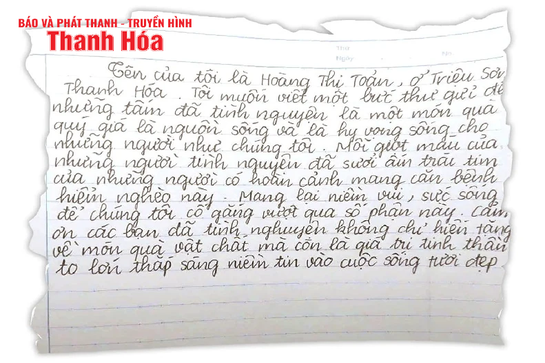 BÁO VÀ PHÁT THANH - TRUYỀN HÌNH
Thanh Hóa
Tên của tôi là Hoàng Thị Toản, ở Triệu Sơn
Thanh Hóa. Tôi muốn viết một bức thư gửi đế
những tấm đã tình nguyện là một món quà
quý giá là nguồn sống và là hy vọng sống cho
những người như chúng tôi. Mỗi giọt máu của
những người tình nguyện đã sưởi ấm trái tim
của những người có hoàn cảnh mang căn bệnh
hiểm nghèo này. Mang lại niềm vui, sức sống
để chúng tôi cố gắng vượt qua số phận này. Cảm
ơn các bạn đã tình nghuyện không chỉ hiến tặng
về món quà vật chất mà còn là giá trị tinh thần
to lớn thắp sáng niềm tin vào cuộc sống tươi đẹp